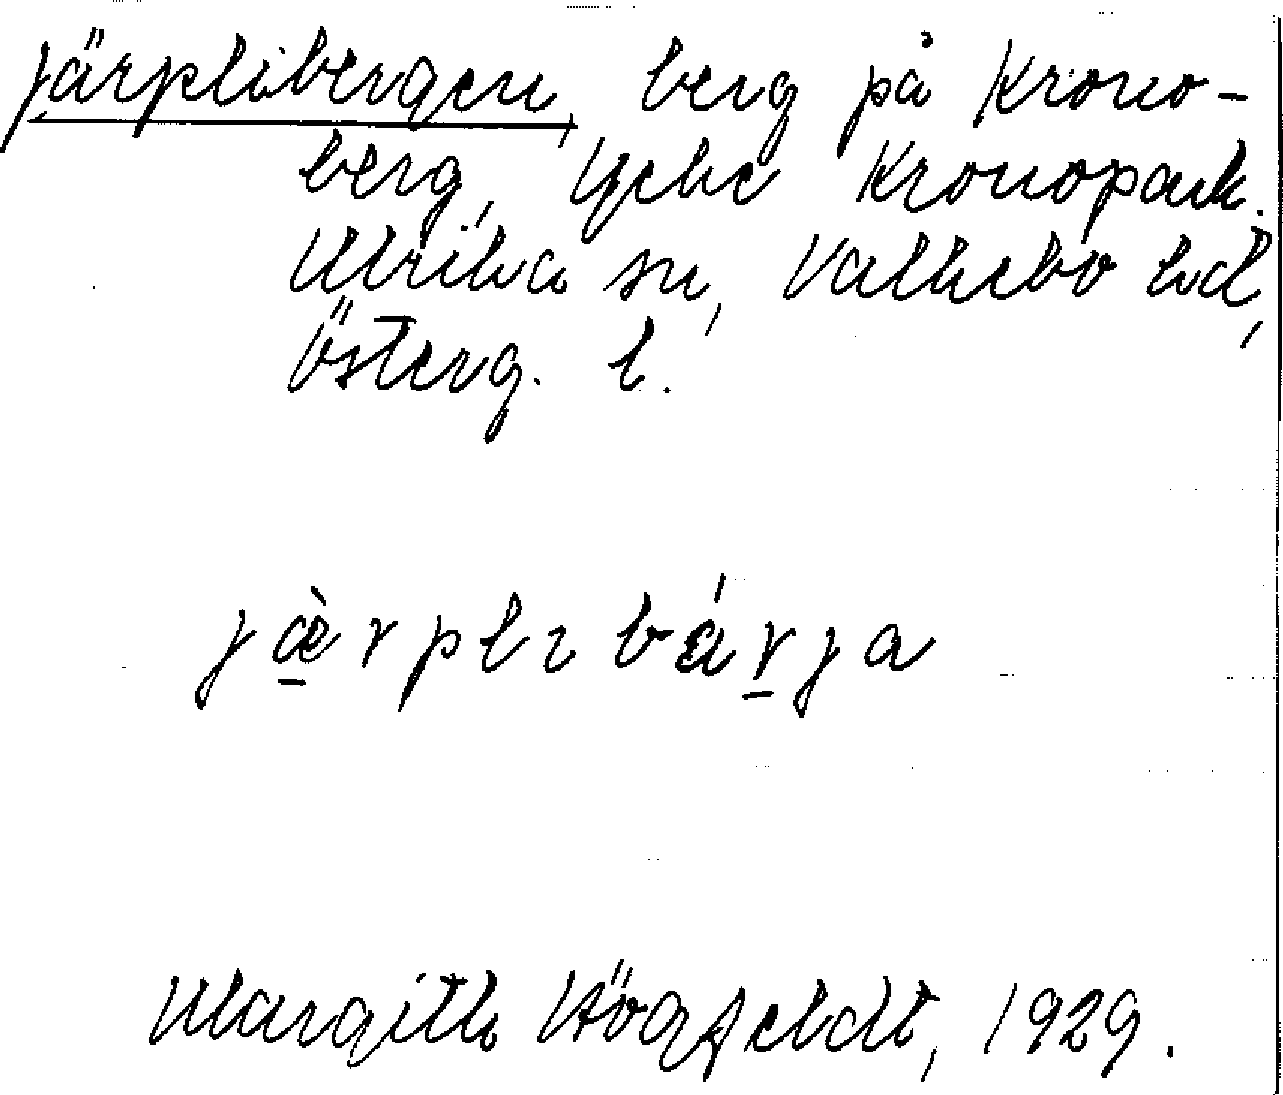 Järplibergen, berg på Krono-
berg, Yxhe Kronopark.
Ulrika sn, Valkebo hd,
Österg. l.
jæ̀rplıbárja
Margith Högfeldt, 1929.